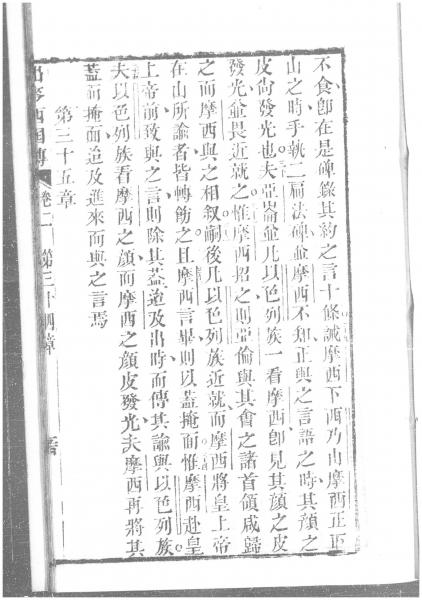 不食卽在是碑錄其約之言十條誡摩西下西乃山摩西正下
山之時手執二扁法碑並摩西不知正與之言語之時其顏之
皮尙發光也夫亞崙並凡以色列族一看摩西卽見其顏之皮
發光並畏近就之惟摩西招之則亞倫與其會之諸首領咸歸
之而摩西與之相叙嗣後凡以色列族近就而摩西將皇上帝
在山所諭者皆轉飭之且摩西言畢則以蓋掩面惟摩西赴皇
上帝前致與之言則除其蓋迨及出時而傳其諭與以色列族
夫以色列族看摩西之顏而摩西之顏皮發光夫摩西再將其
蓋而掩面迨及進來而與之言焉
第三十五章
出麥西國傳 卷二 第三十四章